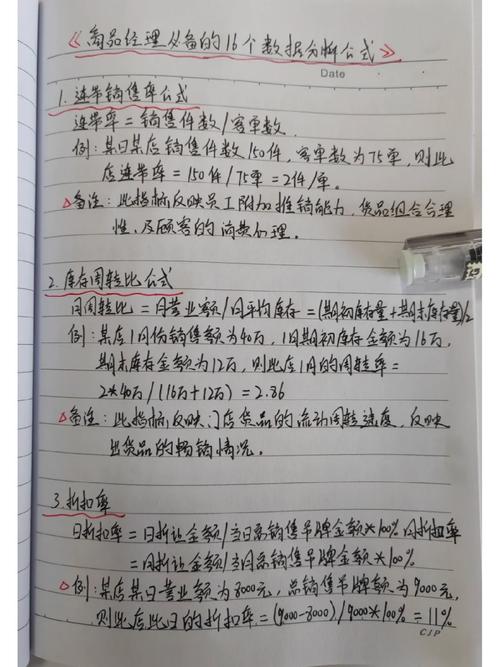 《商品经理必备的16个数据分析公式》
Date
1.连带销售率公式
连带率=销售件数/客单数
例:某日某店销售件数150件,客单数为75单,则此
店连带率=150件/75单=2件/单。
△备注:此指标反映员工附加推销能力,货品组合合理
性,及顾客的消费心理。
2.库存周转比公式
月周转比=月营业额/月平均库存=(期初库存量+期末库存量)/2
例:某店1月份销售额为40万,1月期初库存金额为16万,
期末库存金额为12万,则此店1月的周转率=
2*40万/(16万+12万)=2.86
△备注:此指标反映门店货品的流动周转速度,反映
出货品的畅销情况。
3.折扣率
日折扣率=日折让金额/当日总销售吊牌金额*100% 月折扣率
=月折让金额/当月总销售吊牌金额*100%
△例:某店某日营业额为8000元,总销售吊牌额为9000元,
则此店此日的折扣率=(9000-8000)/9000*100%=11%
CJP